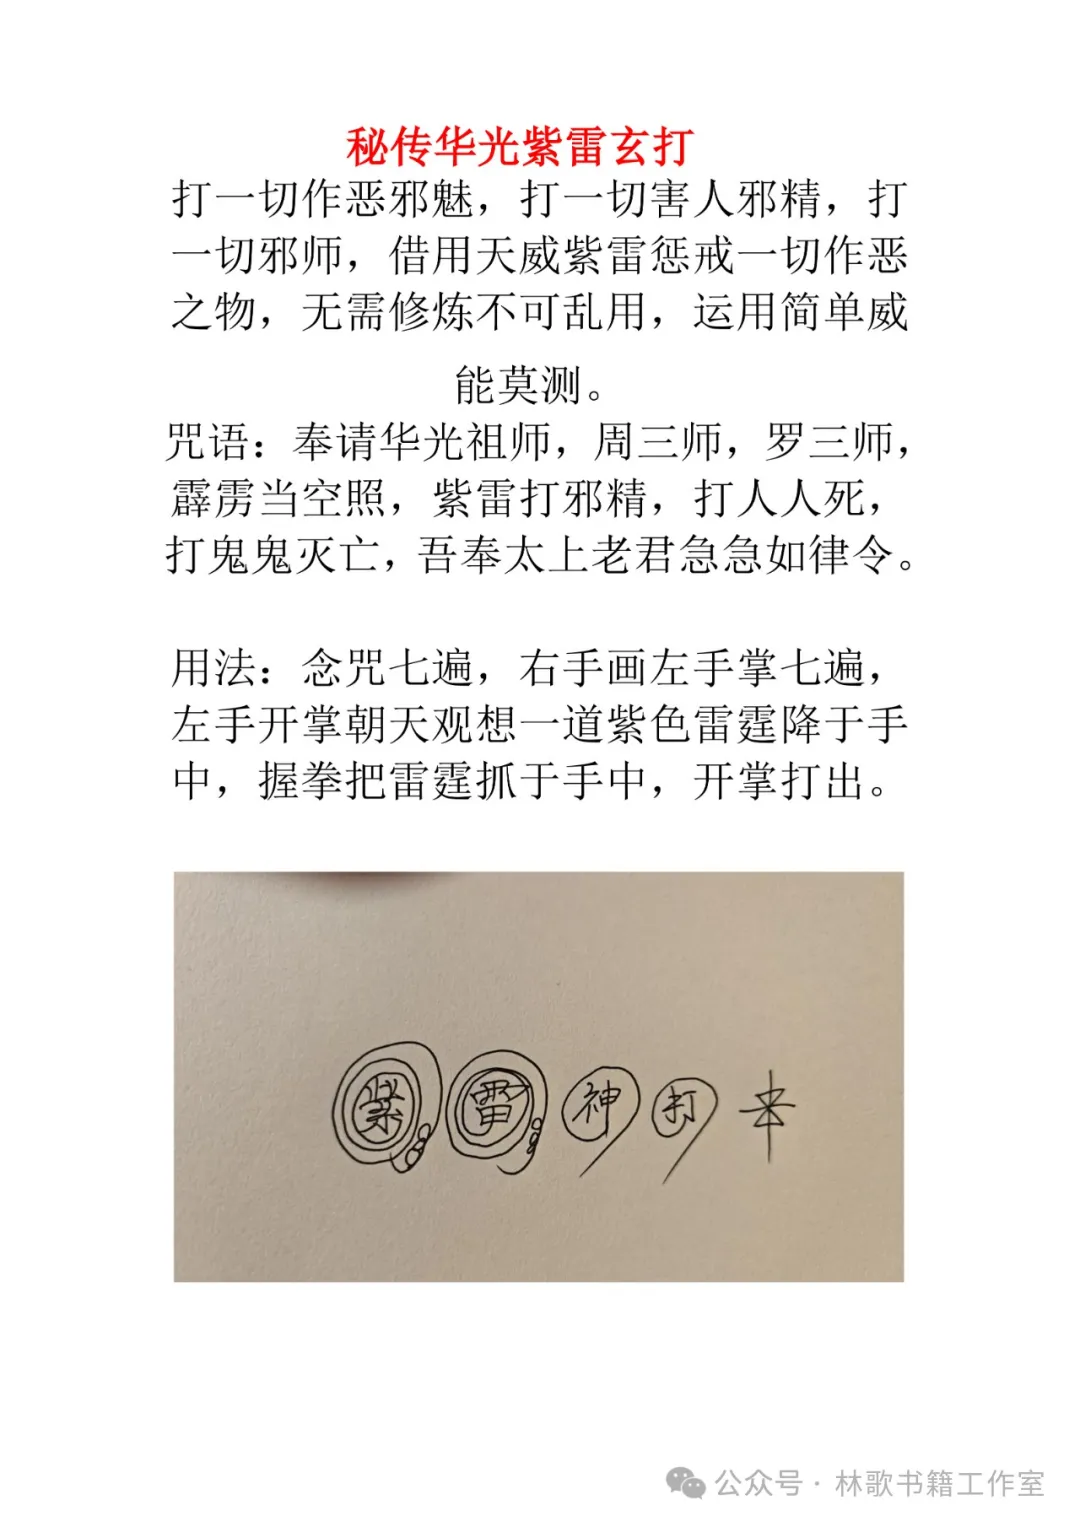 秘传华光紫雷玄打
打一切作恶邪魅，打一切害人邪精，打
一切邪师，借用天威紫雷惩戒一切作恶
之物，无需修炼不可乱用，运用简单威
能莫测。
咒语：奉请华光祖师，周三师，罗三师，
霹雳当空照，紫雷打邪精，打人人死，
打鬼鬼灭亡，吾奉太上老君急急如律令。
用法：念咒七遍，右手画左手掌七遍，
左手开掌朝天观想一道紫色雷霆降于手
中，握拳把雷霆抓于手中，开掌打出。
紫 雷 神 打
公众号 · 林歌书籍工作室